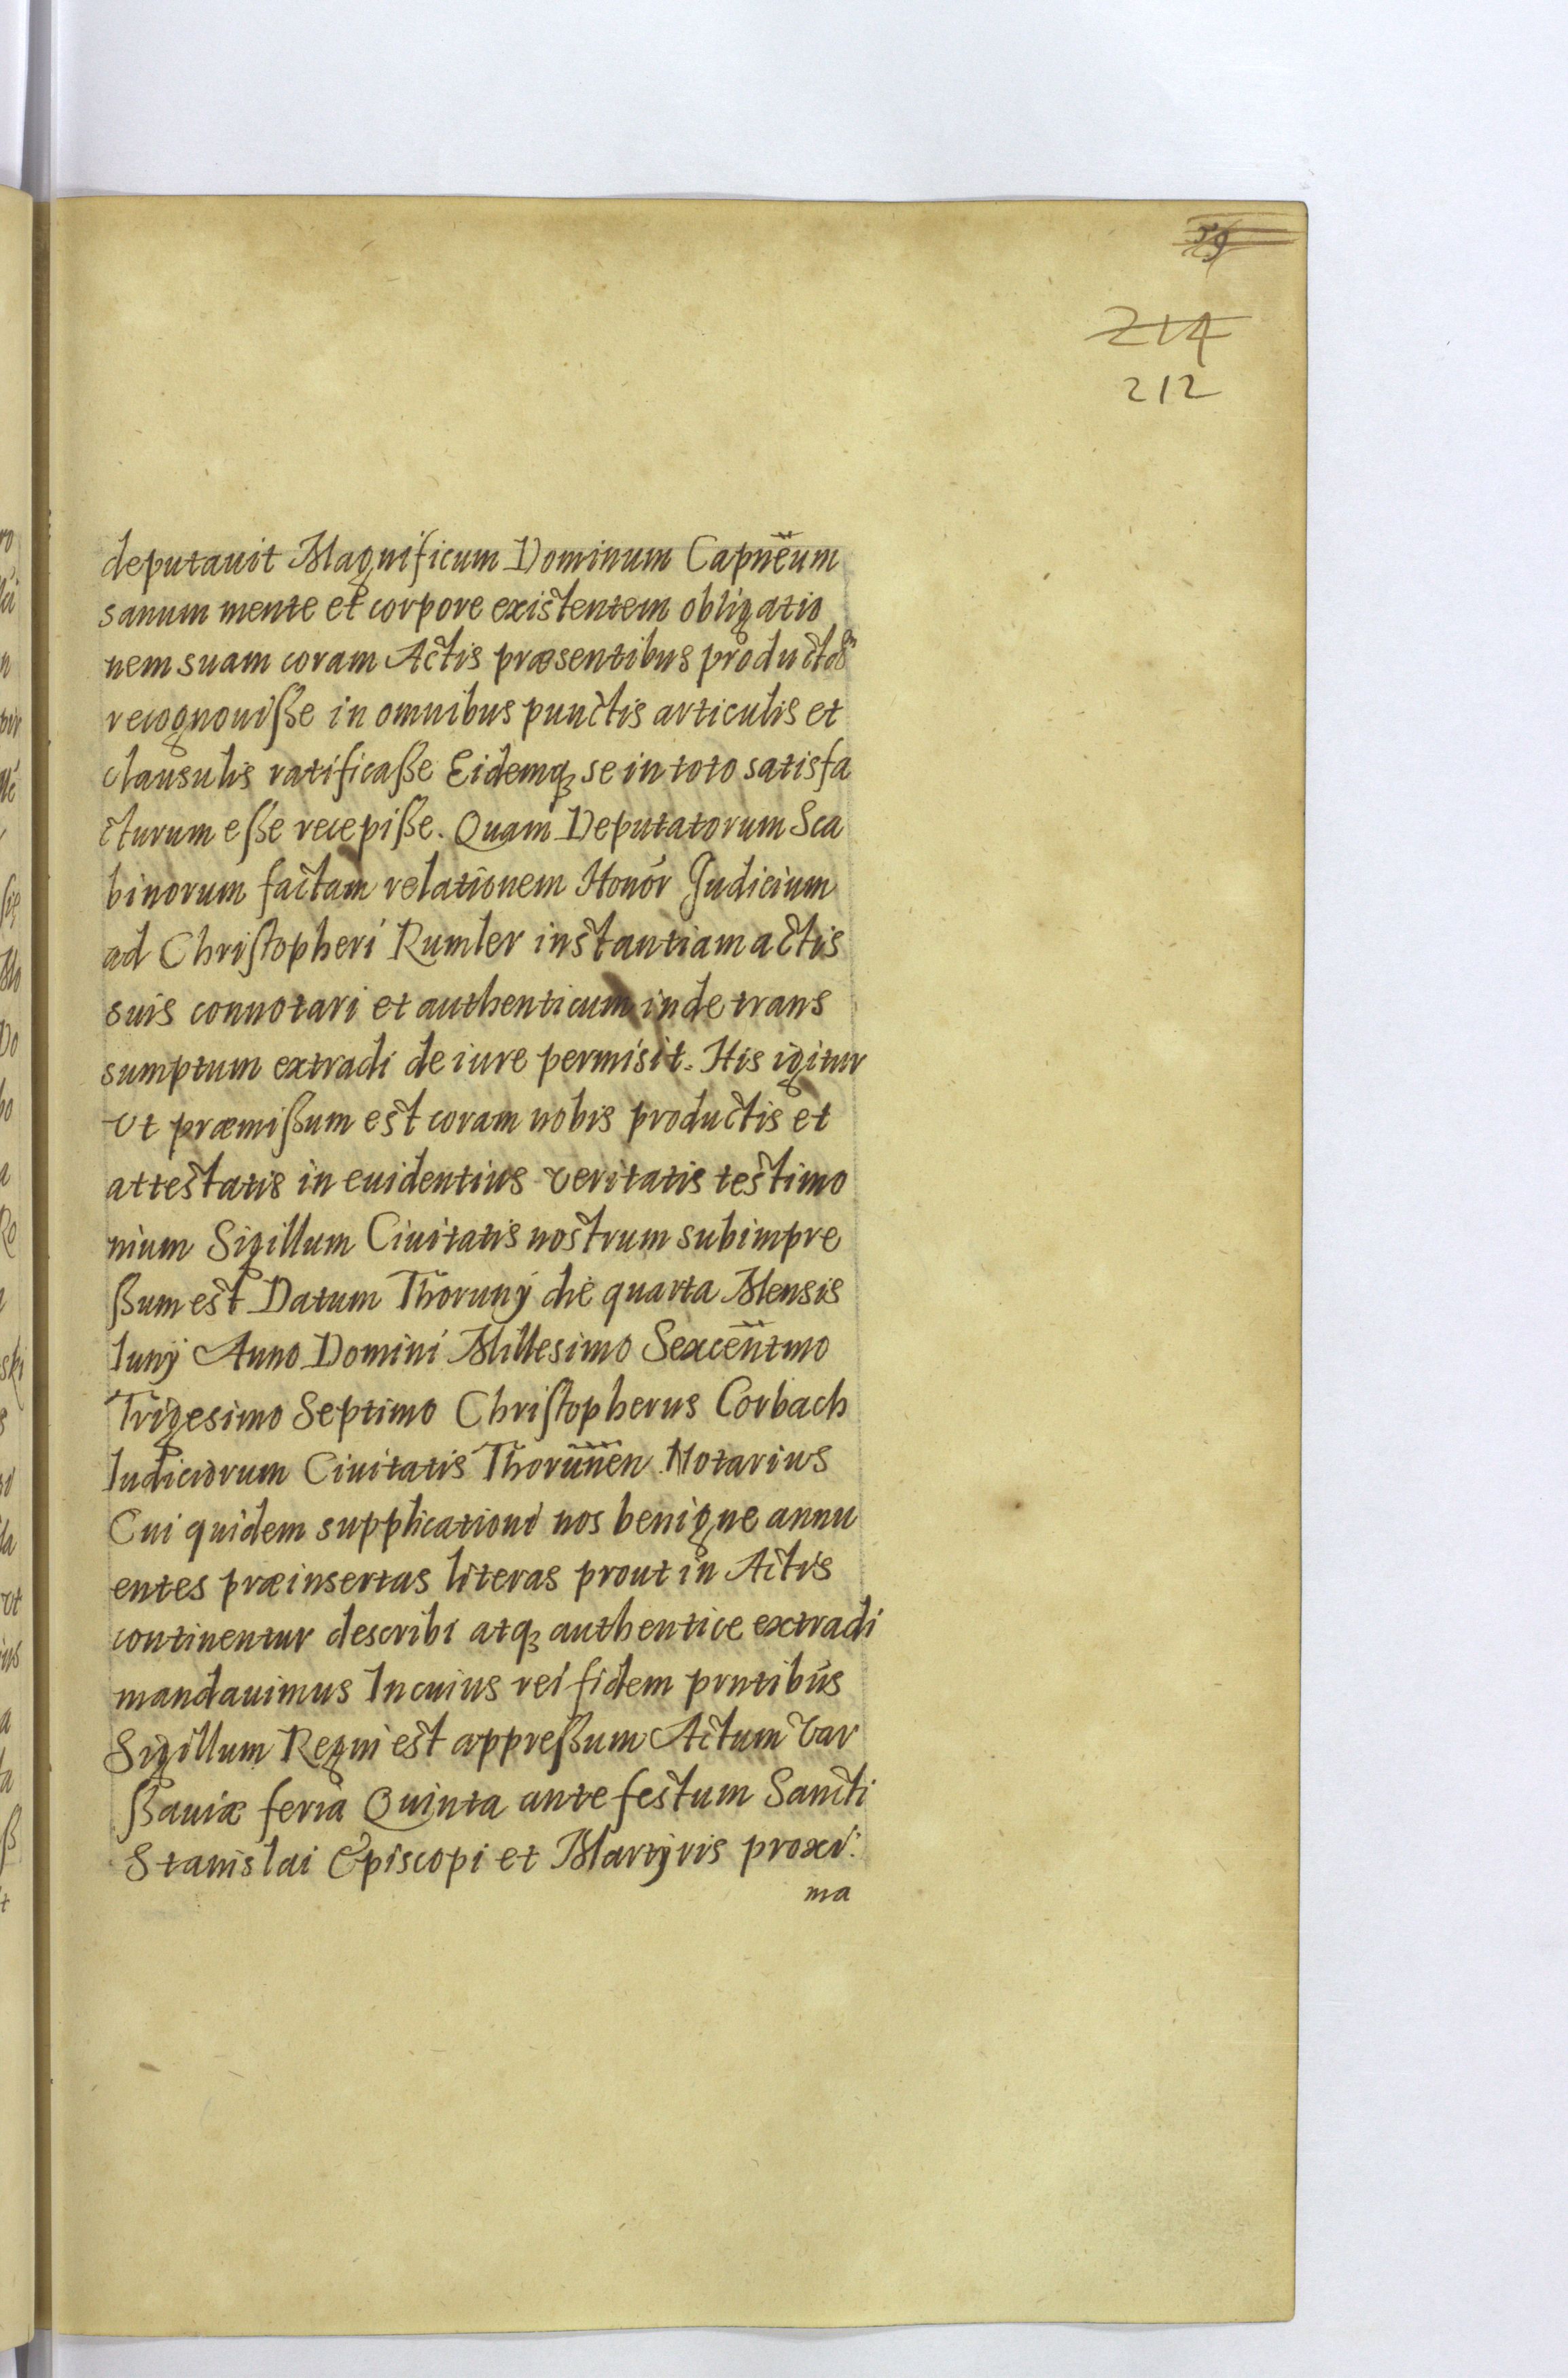 59
214
212
deputauit Magnificum Dominum Capnēum
sanum mente et corpore existentem obligatio
nem suam coram Actis præsentibus productam
recognouiße in omnibus punctis articulis et
clausulis ratificaße Eidemqꝫ se in toto satisfa
cturum eße recepiße. Quam Deputatorum Sca
binorum factam relationem Honor Judicium
ad Christopheri Rumler instantiam actis
suis connotari et authenticum inde trans
sumptum extradi de iure permisit. His igitur
vt præmißum est coram nobis productis et
attestatis in euidentius veritatis testimo
nium Sigillum Ciuitatis nostrum subimpre
ßum est Datum Thorunÿ die quarta Mensis
Iunÿ Anno Domini Millesimo Sexcen̄tmo
Trigesimo Septimo Christopherus Corbach
Iudiciorum Ciuitatis Thorun̄en Notarius
Cui quidem supplicationi nos benigne annu
entes præinsertas literas prout in Actis
continentur describi atqꝫ authentice extradi
mandauimus In cuius rei fidem pr̄ntibus
Sigillum Regni est appreßum Actum Var
ßauiæ feria Quinta ante festum Sancti
Stanislai Episcopi et Martÿris proxi:
ma